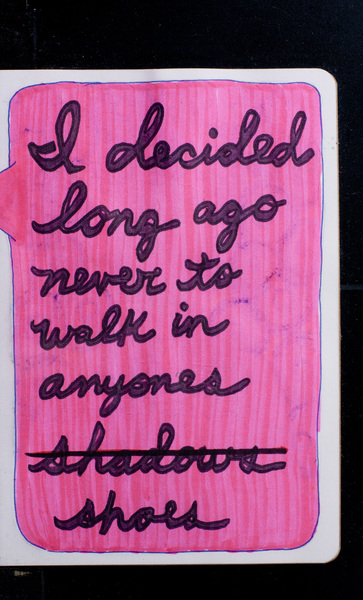 I decided
long ago
never to
walk in
anyones
shadows
shoes